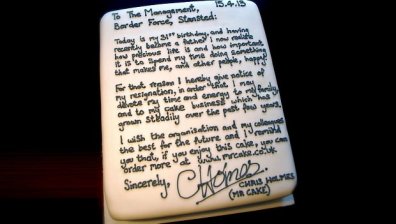 To The Management, 15.4.13
Border Force, Stansted:
Today is my 31st birthday, and having
recently become a father I now realise
how precious life is and how important
it is to spend my time doing something
that makes me, and other people, happy.
For that reason I hereby give notice of
my resignation, in order that I may
devote my time and energy to my family,
and to my cake business which has
grown steadily over the past few years.
I wish the organisation and my colleagues
the best for the future and I remind
you that, if you enjoy this cake, you can
order more at www.mrcake.co.uk
Sincerely, CHolmes
CHRIS HOLMES
(MR CAKE)